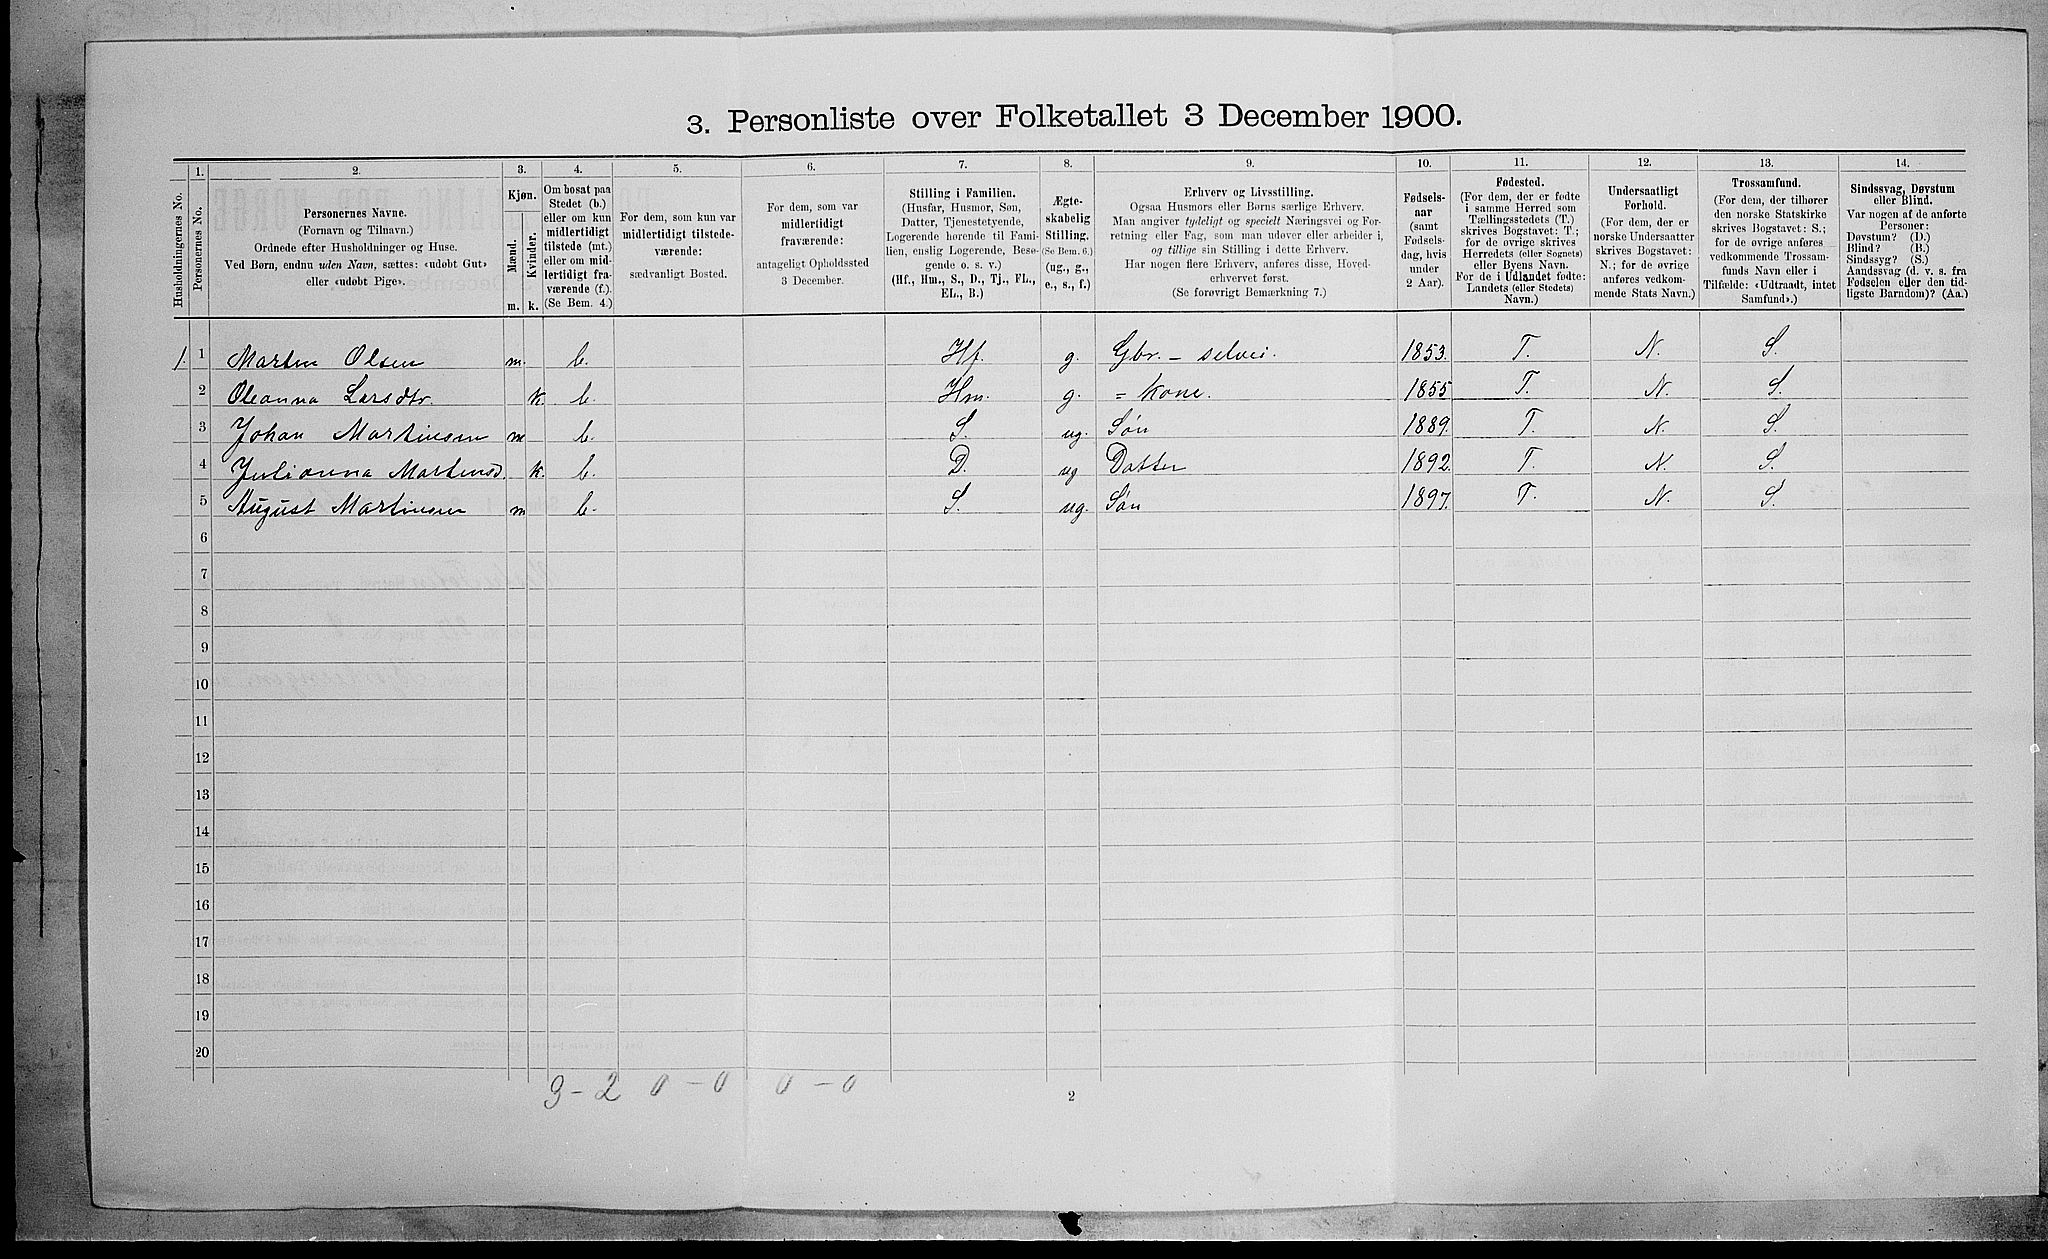 3. Personliste over Folketallet 3 December 1900.
Husholdningernes No.
1.
Personernes No.
2.
Personernes Navne.
(Fornavn og Tilnavn.)
Ordnede efter Husholdninger og Huse.
Ved Børn, endnu uden Navn, sættes: «udøbt Gut»
eller «udøbt Pige».
3.
Kjøn.
Mænd.
Kvinder.
m. k.
4.
Om bosat paa
Stedet (b.)
eller om kun
midlertidigt
tilstede (mt.)
eller om mid-
lertidigt fra-
værende (f.).
(Se Bem. 4.)
5.
For dem, som kun var
midlertidigt tilstede-
værende:
sædvanligt Bosted.
6.
For dem, som var
midlertidigt
fraværende:
antageligt Opholdssted
3 December.
7.
Stilling i Familien.
(Husfar, Husmor, Søn,
Datter, Tjenestetyende,
Logerende hørende til Fami-
lien, enslig Logerende, Besø-
gende o. s. v.)
(Hf., Hm., S., D., Tj., FL.,
EL., B.)
8.
Ægte-
skabelig
Stilling.
(Se Bem. 6.)
(ug., g.,
e., s., f.)
9.
Erhverv og Livsstilling.
Ogsaa Husmors eller Børns særlige Erhverv.
Man angiver tydeligt og specielt Næringsvei og For-
retning eller Fag, som man udøver eller arbeider i,
og tillige sin Stilling i dette Erhverv.
Har nogen flere Erhverv, anføres disse, Hoved-
erhvervet først.
(Se forøvrigt Bemærkning 7.)
10.
Fødsels-
aar
(samt
Fødsels-
dag, hvis
under
2 Aar).
11.
Fødested.
(For dem, der er fødte
i samme Herred som
Tællingsstedets (T.)
skrives Bogstavet: T.;
for de øvrige skrives
Herredets (eller Sognets)
eller Byens Navn.
For de i Udlandet fødte:
Landets (eller Stedets)
Navn.)
12.
Undersaatligt
Forhold.
(For dem, der er
norske Undersaatter
skrives Bogstavet:
N.; for de øvrige
anføres vedkom-
mende Stats Navn.)
13.
Trossamfund.
(For dem, der tilhører
den norske Statskirke
skrives Bogstavet: S.;
for de øvrige anføres
vedkommende Trossam-
funds Navn eller i
Tilfælde: «Udtraadt, intet
Samfund».)
14.
Sindssvag, Døvstum
eller Blind.
Var nogen af de anførte
Personer:
Døvstum? (D.)
Blind? (B.)
Sindssyg? (S.)
Aandssvag (d. v. s. fra
Fødselen eller den tid-
ligste Barndom)? (Aa.)
1. 1 Martin Olsen m. b. Hf. g. Gbr. - selvei. 1853. T. N. S.
2 Oleanna Larsdtr. k. b. Hm. g. = kone. 1855 T. N. S.
3 Johan Martinsen m b. S. ug. Søn 1889. T. N. S.
4 Julianna Martinsd. k. b. D. ug Datter 1892. T. N. S.
5 August Martinsen m b. S. ug. Søn 1897. T. N. S.
6
7
8
9
10
11
12
13
14
15
16
17
18
19
20
3 - 2 0 - 0 0 - 0
2